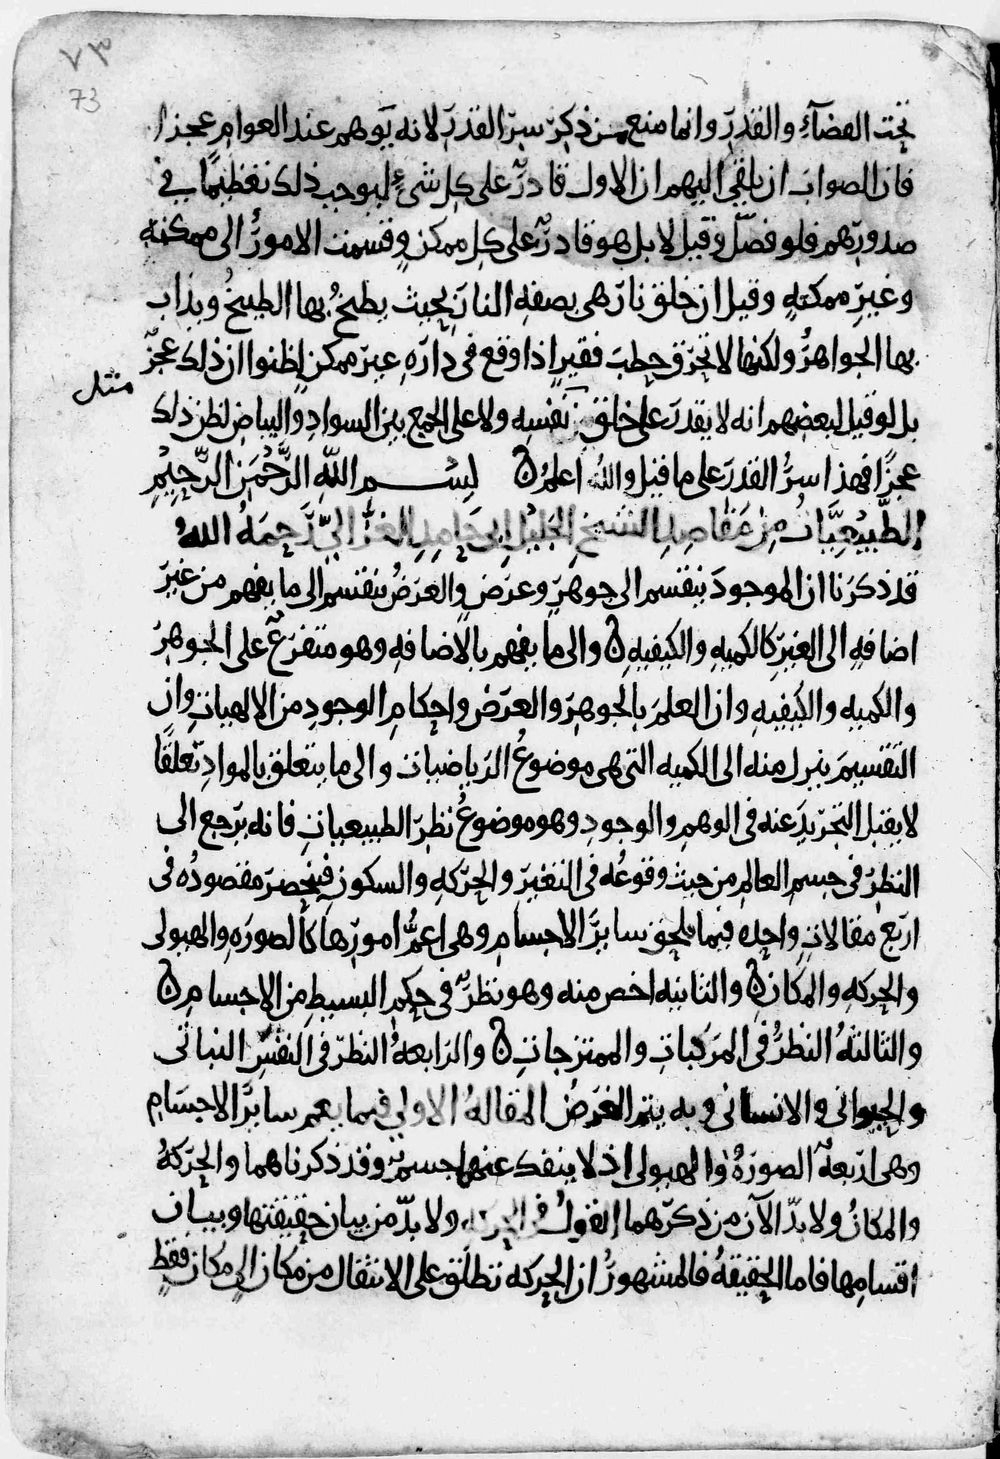 ٧٣
73
تحت القضآء والقدر وانما منع من ذكر سر القدر لانه يوهم عند العوام عجزا
فان الصواب ان يلقى اليهم ان الاول قادر على كل شىء ليوجب ذلك تعظيمًا في
صدورهم فلو فصّل وقيل لا بل هو قادر على كل ممكن وقسمت الامور الى ممكنه
وغير ممكنه وقيل ان خلق نار هى بصفه النار بحيث يطبخ بها الطبيخ ويذاب
بها الجواهر ولكنها لا تحرق حطب فقير اذا وقع فى داره غير ممكن لظنوا ان ذلك عجز
مثل
بل لو قيل لبعضهم انه لا يقدر على خلق نفسه ولا على الجمع بين السواد والبياض لظن ذلك
عجزًا فهذا سر القدر على ما قيل والله اعلم ن بسم الله الرحمن الرحيم
الطبيعيات من مقاصد الشيخ الجليل ابى حامد الغزالى رحمه الله
قد ذكرنا ان الموجود ينقسم الى جوهر وعرض والعرض ينقسم الى ما يفهم من غير
اضافه الى الغير كالكميه والكيفيه ن والى ما يفهم بالاضافه وهو متفرع على الجوهر
والكميه والكيفيه وان العلم بالجوهر والعرض واحكام الوجود من الالهيات وان
التقسيم ينزل منه الى الكميه التى هى موضوع الرياضيات والى ما يتعلق بالمواد تعلقًا
لا يقبل التجريد عنه فى الوهم والوجود وهو موضوع نظر الطبيعيات فانه يرجع الى
النظر فى جسم العالم من حيث وقوعه فى التغير والحركه والسكون فينحصر مقصوده فى
اربع مقالات واحده فيما يلحق سائر الاجسام وهى اعم امورها كالصوره والهيولى
والحركه والمكان ن والثانيه اخص منه وهو نظر فى حكم البسيط من الاجسام ن
والثالثه النظر فى المركبات والممتزجات ن والرابعه النظر فى النفس النباتى
والحيوانى والانسانى وبه يتم الغرض المقاله الاولى فيما يعم سائر الاجسام
وهى اربعه الصوره والهيولى اذ لا ينفك عنهما جسم وقد ذكرناهما والحركه
والمكان ولا بد الآن من ذكرهما القول فى الحركه ولا بد من بيان حقيقتها وبيان
اقسامها فاما الحقيقه فالمشهور ان الحركه تطلق على الانتقال من مكان الى مكان فقط